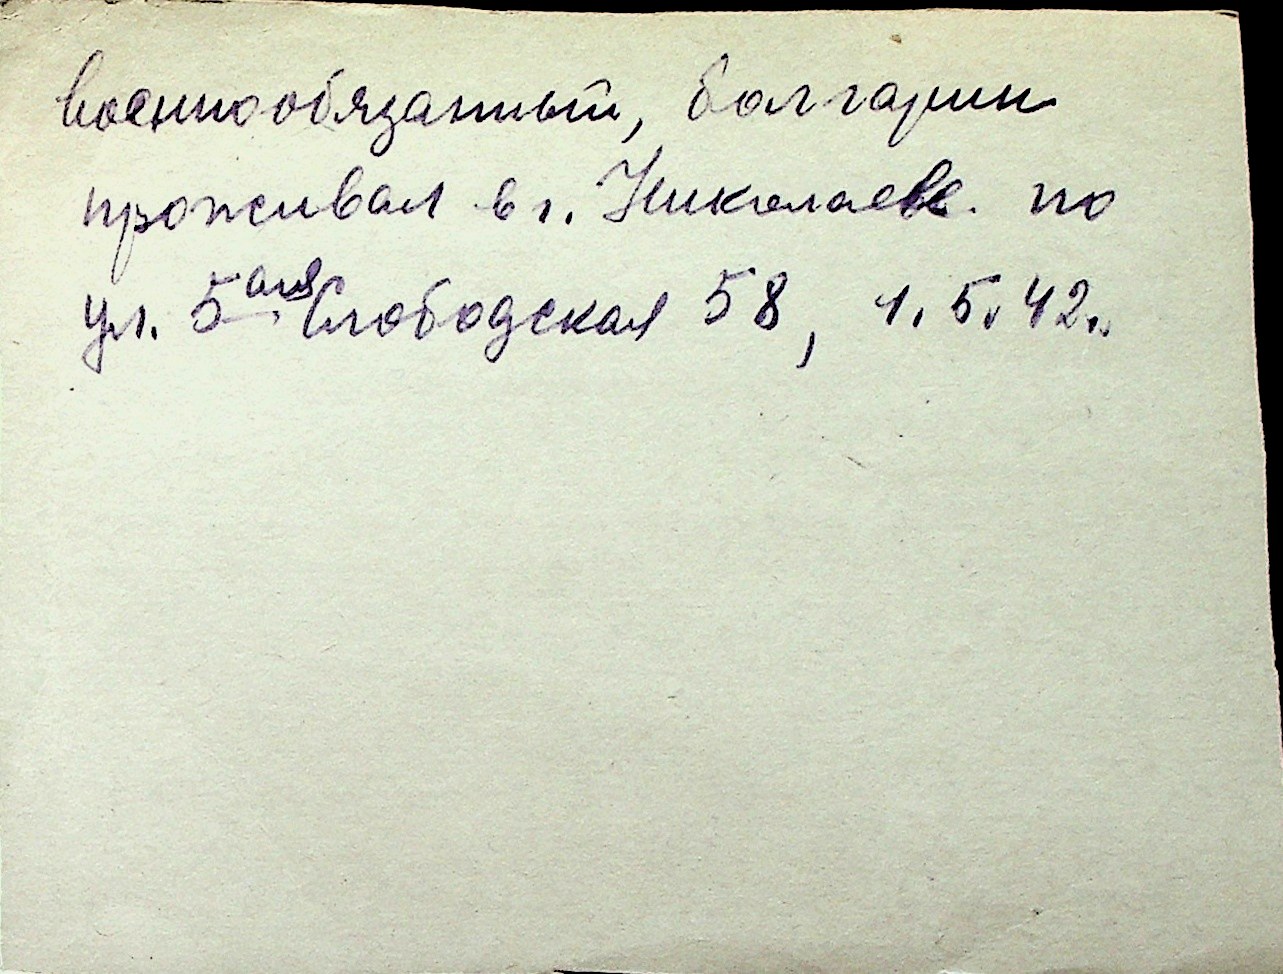 военнообязанный, болгарин
проживал в г. Николаеве по
ул. 5ая Слободская 58, 1.5.42.